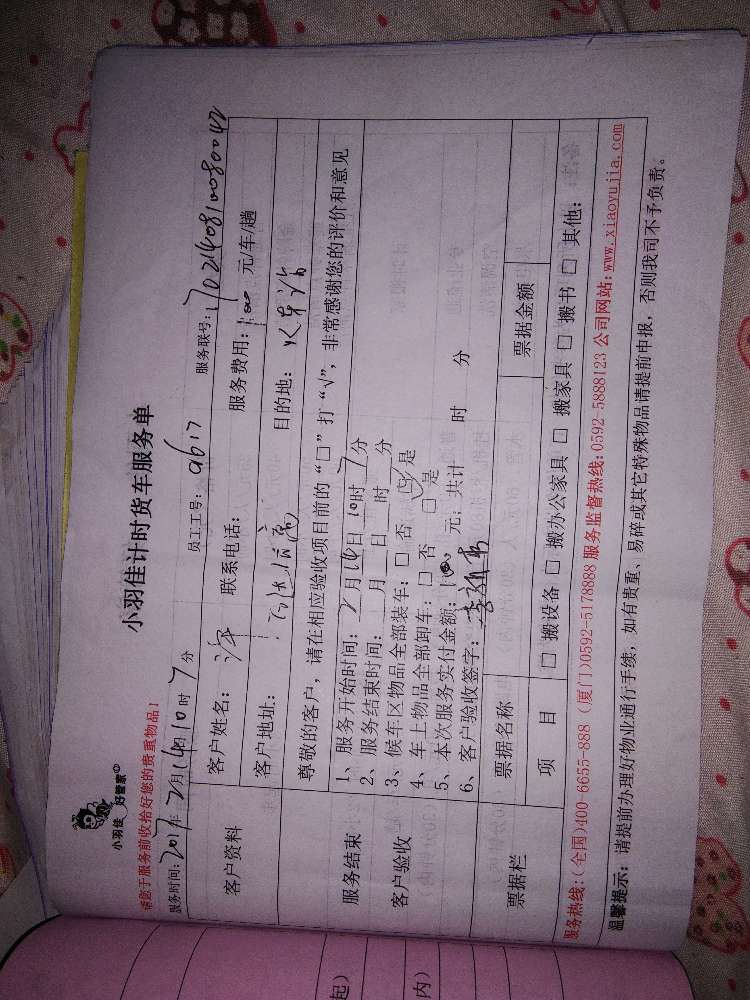 小羽佳 好管家
小羽佳计时货车服务单
请您于服务前收拾好您的贵重物品!
服务时间: 2017年 2月 14日 10时 7分 员工工号: 9617 服务联号: 1702140810080042
客户资料
客户姓名: 联系电话: 服务费用: 100 元/车/趟
客户地址: 目的地:
服务结束
客户验收
尊敬的客户,请在相应验收项目前的“□”打“√”,非常感谢您的评价和意见
1、服务开始时间: 2月14日10时7分
2、服务结束时间: 月 日 时 分
3、候车区物品全部装车: □ 否 ☑ 是
4、车上物品全部卸车: □ 否 □ 是
5、本次服务实付金额: 100 元; 共计 时 分
6、客户验收签字:
票据栏
票据名称 票据金额
项 目 □ 搬设备 □ 搬办公家具 □ 搬家具 □ 搬书 □ 其他:
服务热线:(全国)400-6655-888 (厦门)0592-5178888 服务监督热线:0592-5888123 公司网站:www.xiaoyujia.com
温馨提示: 请提前办理好物业通行手续, 如有贵重、易碎或其它特殊物品请提前申报, 否则我司不予负责。
起)
内)